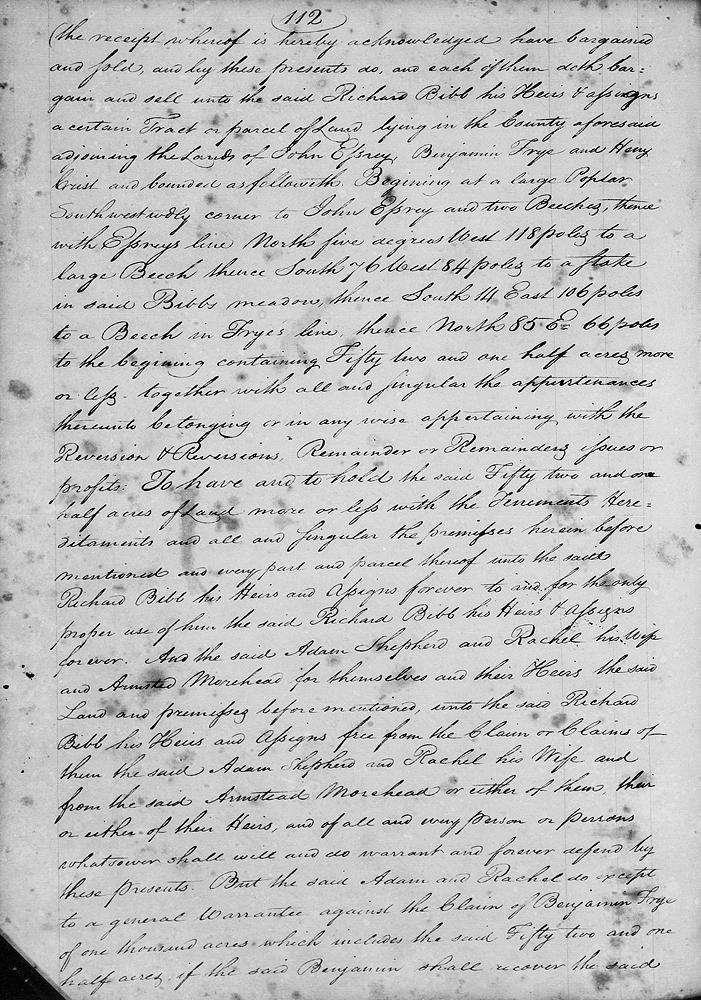 112
(the receipt whereof is hereby acknowledged have bargained
and sold, and by these presents do, and each of them doth bar=
gain and sell unto the said Richard Bibb his Heirs & assigns
a certain Tract or parcel of Land lying in the County aforesaid
adjoining the Lands of John Essrey, Benjamin Frye and Heny
Crist and bounded as followith. Begining at a large Poplar
Southwestwdly corner to John Essrey and two Beeches, thence
with Essreys line North five degrees West 118 poles to a
large Beech thence South 76 West 84 poles to a stake
in said Bibbs meadow, thence South 14 East 106 poles
to a Beech in Fryes line, thence North 85 E= 66 poles
to the begining containing Fifty two and one half acres more
or less. together with all and singular the appurtenances
thereunto belonging or in any wise appertaining with the
Reversion & Reversions, Remainder or Remainders issues or
profits: To have and to hold the said Fifty two and one
half acres of Land more or less with the Tenements Here=
ditaments and all and singular the premisses herein before
mentioned and every part and parcel thereof unto the said
Richard Bibb his Heirs and Assigns forever to and for the only
proper use of him the said Richard Bibb his Heirs & Assigns
forever. And the said Adam Shepherd and Rachel his Wife
and Armsted Morehead for themselves and their Heirs the said
Land and premisses before mentioned, unto the said Richard
Bibb his Heirs and Assigns free from the Claim or Claims of
them the said Adam Shepherd and Rachel his Wife and
from the said Armstead Morehead or either of them, their
or either of their Heirs, and of all and every person or persons
whatsoever shall will and do warrant and forever defend by
these presents. But the said Adam and Rachel do except
to a general Warrantee against the Claim of Benjamin Frye
of one thousand acres which includes the said Fifty two and one
half acres, if the said Benjamin shall recover the said